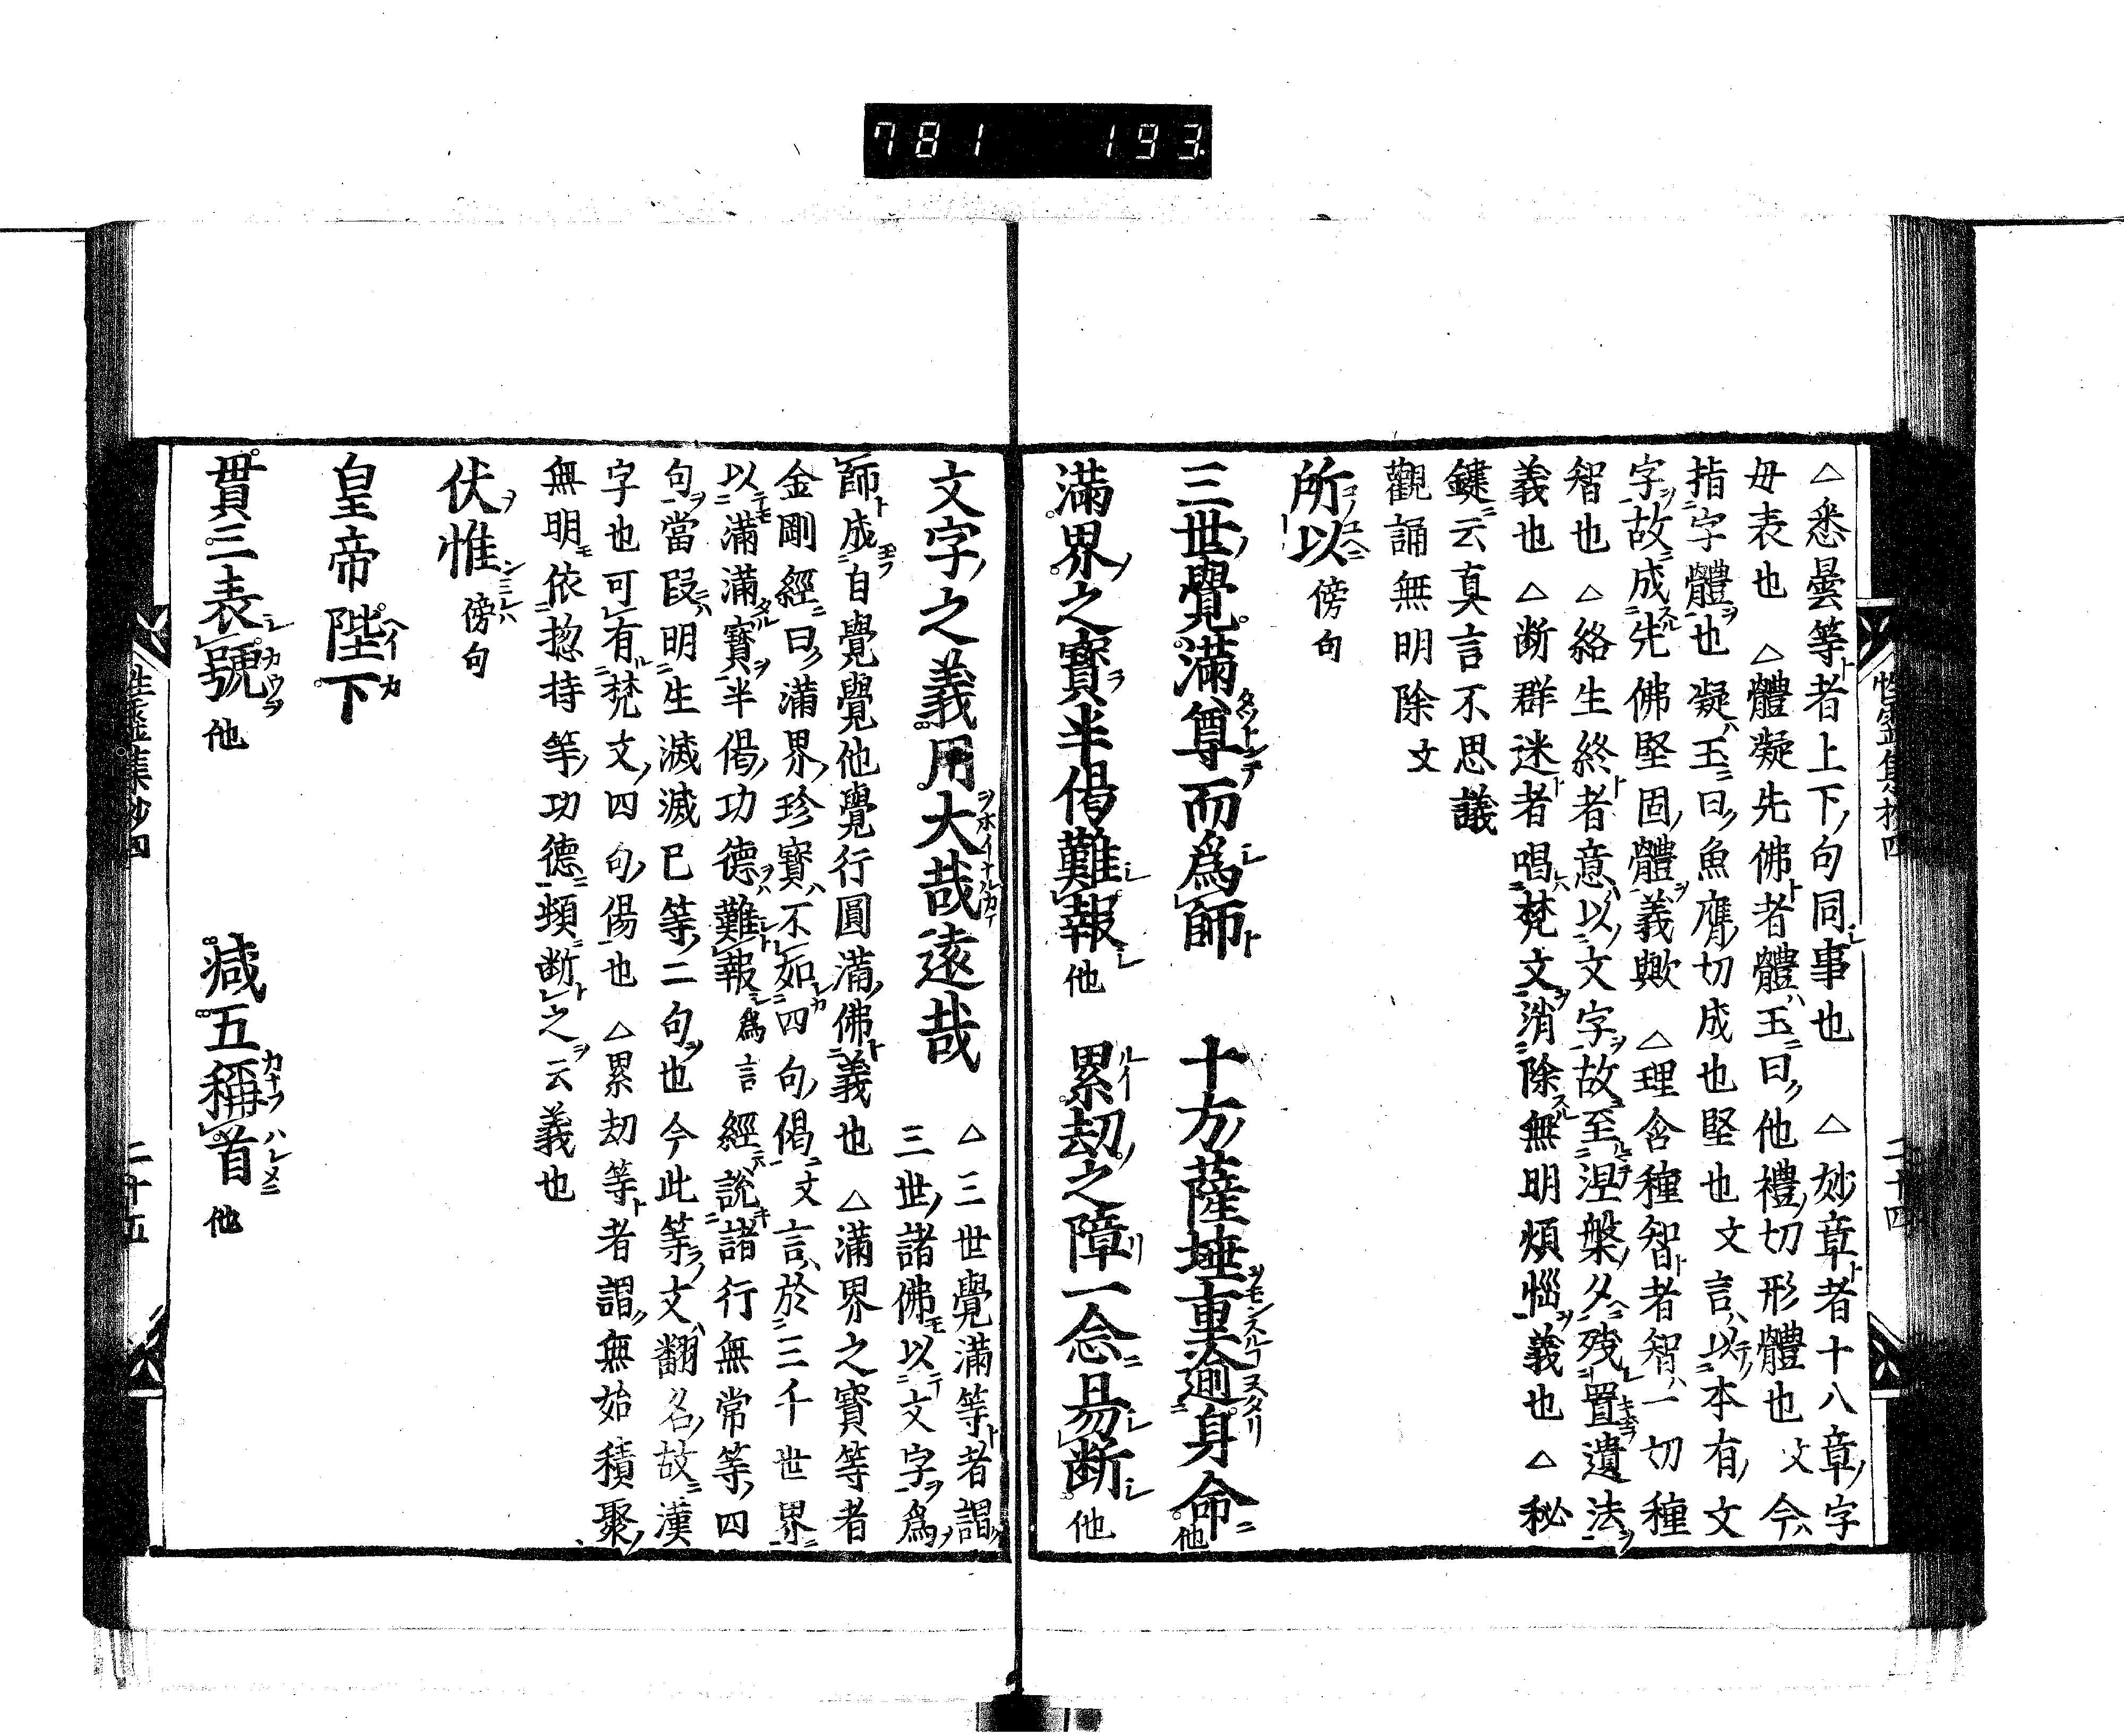 781 193
△悉曇等者上下句同事也 △妙章者十八章字
毋表也 △體凝先佛者體玉曰他禮切形體也文今
指字體也凝玉曰魚膺切成也堅也文言以本有文
字故成先佛堅固體義歟 △理含種智者智一切種
智也 △絡生終者意以文字故至涅槃夕殘置遺法
義也 △断群迷者唱梵文消除無明煩惱義也 △秘
鍵云真言不思議
觀誦無明除文
所以傍句
三世覺滿尊而爲師 十方薩埵重逾身命他
滿界之寶半偈難報他 累劫之障一念易断他
文字之義用大哉遠哉 △三世覺滿等者謂
三世諸佛以文字爲
師成自覺覺他覺行圓滿佛義也 △滿界之寶等者
金剛經曰滿界珍寶不如四句偈文言於三千世界
以滿滿寶半偈功德難報爲言經說諸行無常等四
句當段明生滅滅已等二句也今此等文翻名故漢
字也可有梵文四句偈也 △累劫等者謂無始積聚
無明依揔持等功德頓断之云義也
伏惟傍句
皇帝陛下
貫三表號他 减五稱首他
性霊集抄四
二十四
性霊集抄四
二十五